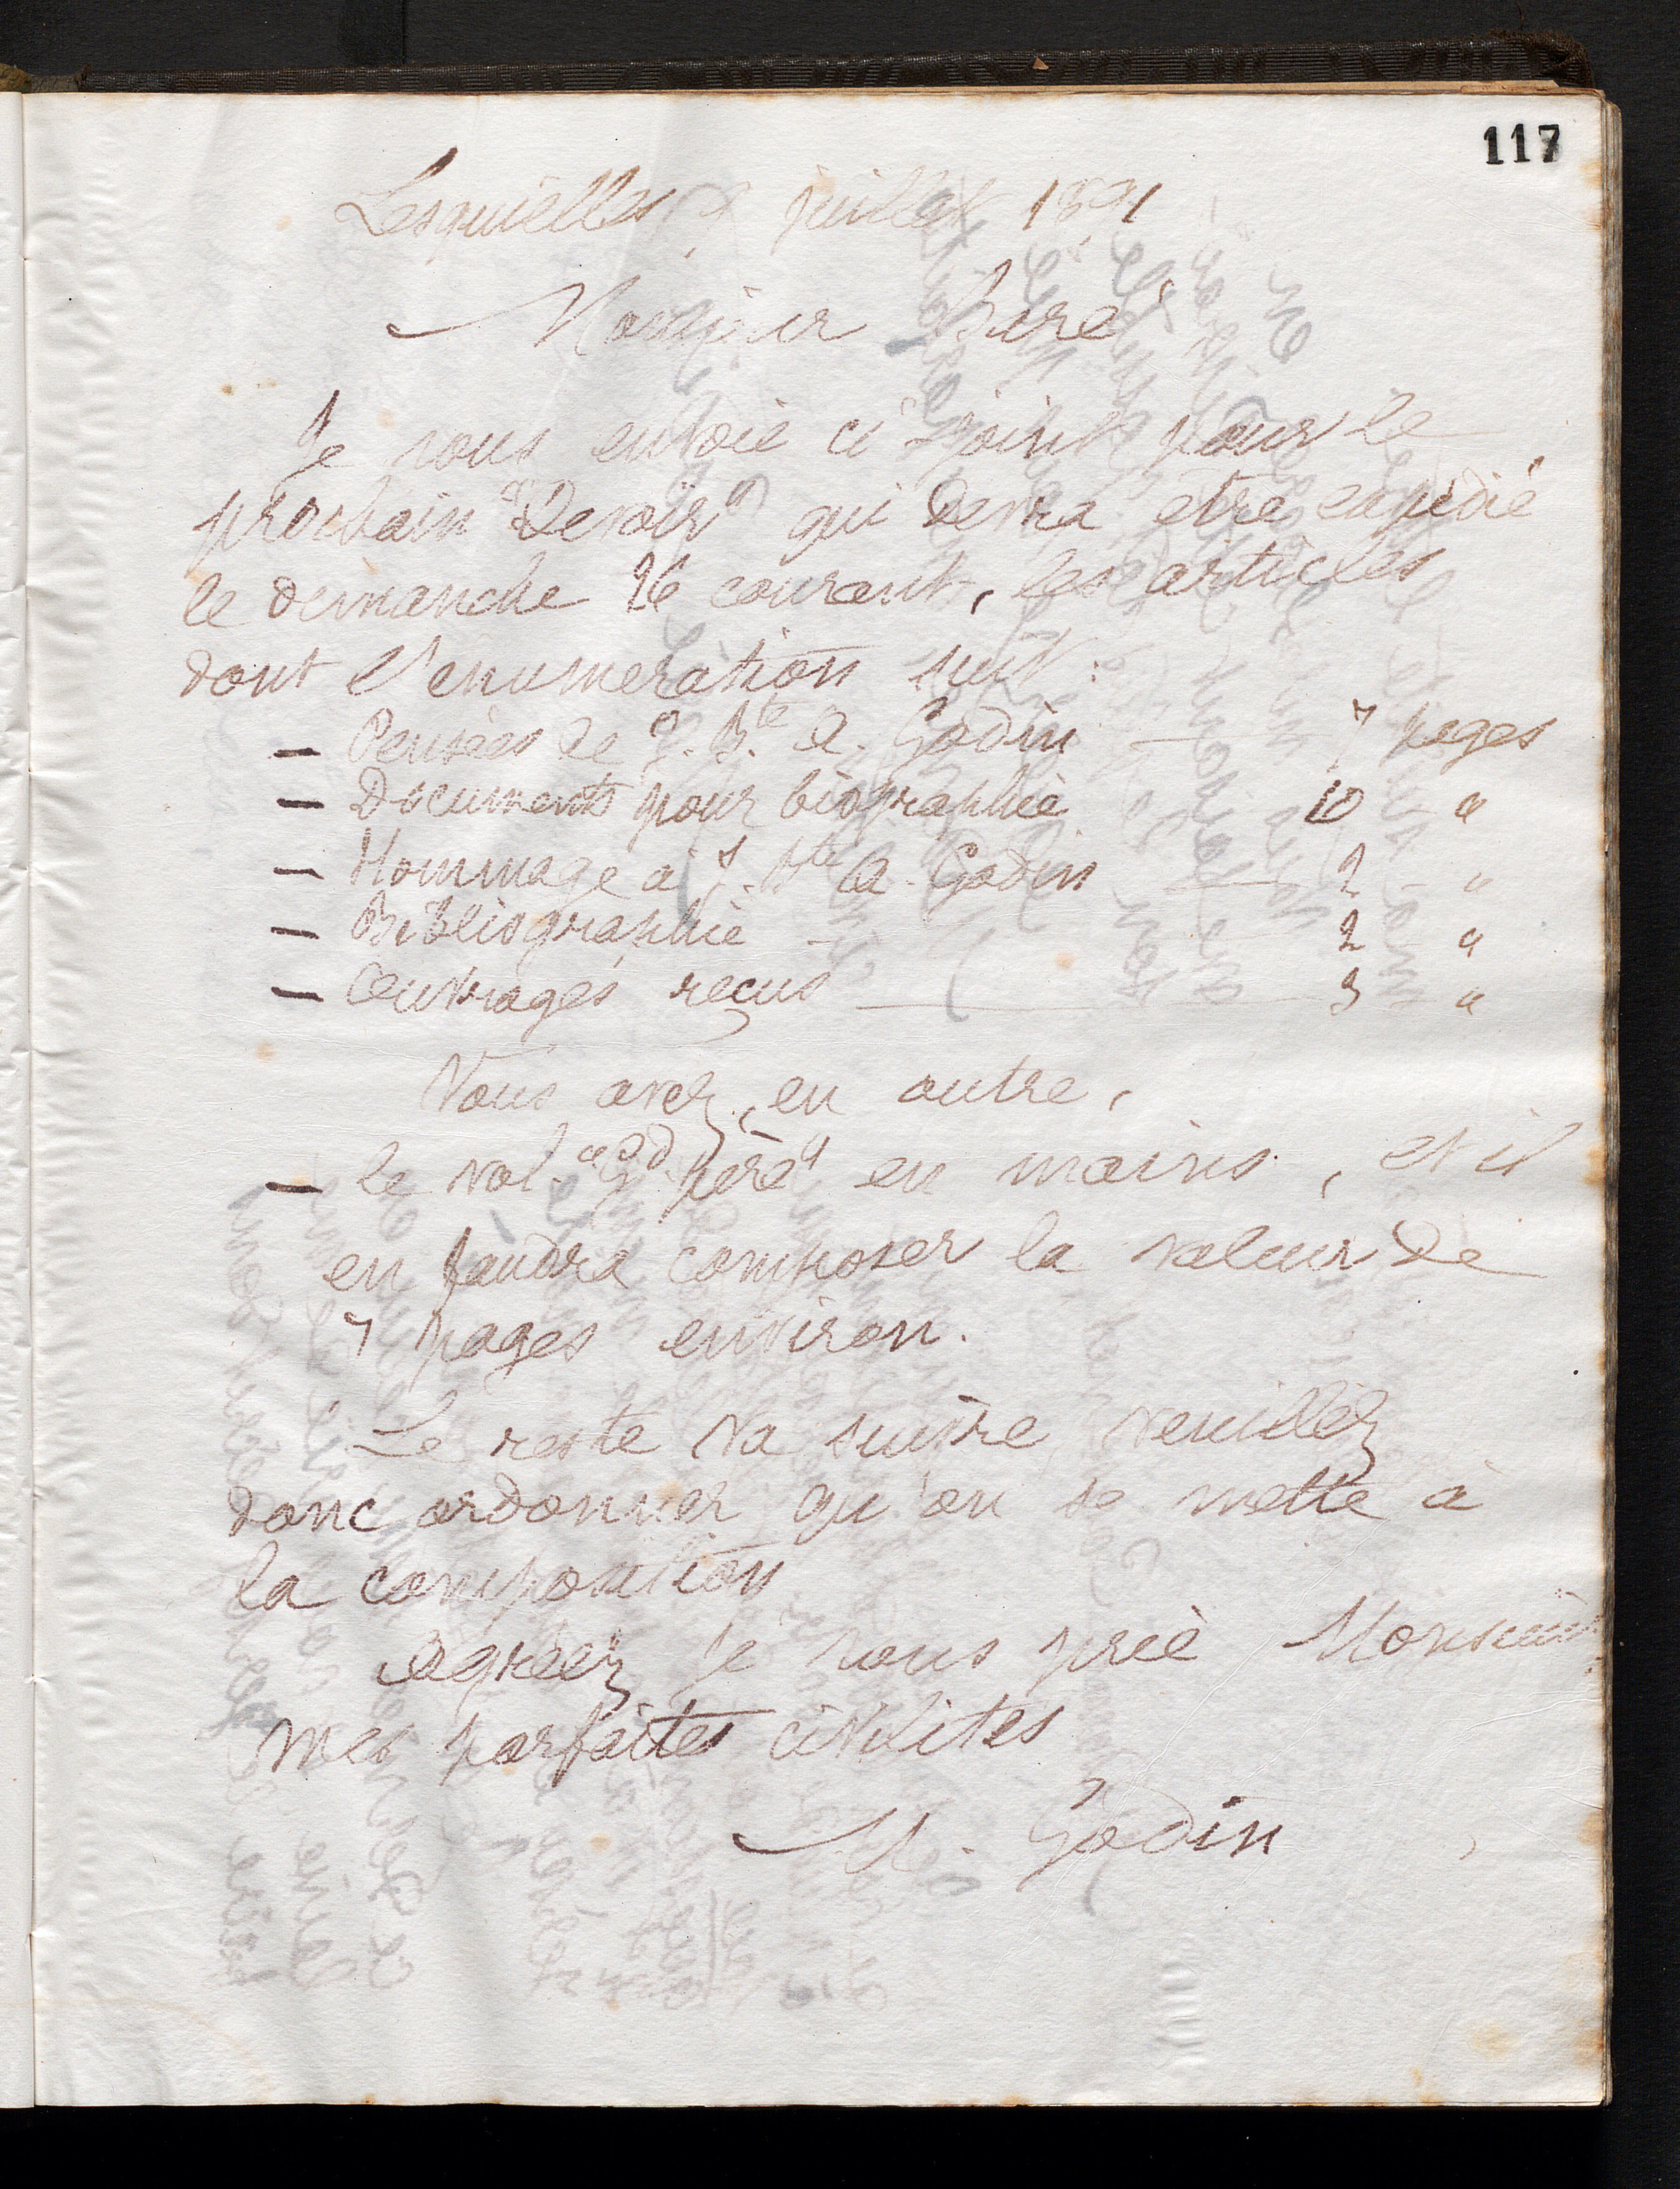 117
Lesquielles 9 juillet 1891
Monsieur Buré
Je vous envoie ci joint pour le
prochain "Devoir" qui devra être expédié
le dimanche 26 courant, les articles
dont l'énumération suit :
— Pensées de J. B.te A. Godin — 7 pages
— Documents pour biographie 10 "
— Hommage à J. Bte A. Godin — 2 "
— Bibliographie — 2 "
— Ouvrages reçus — 3 "
Vous avez, en outre,
— le vol. "Gd père" en mains, et il
en faudra composer la valeur de
7 pages environ.
Le reste va suivre, veuillez
donc ordonner qu'on se mette à
la composition
Agréez je vous prie Monsieur
mes parfaites civilités
M. Godin